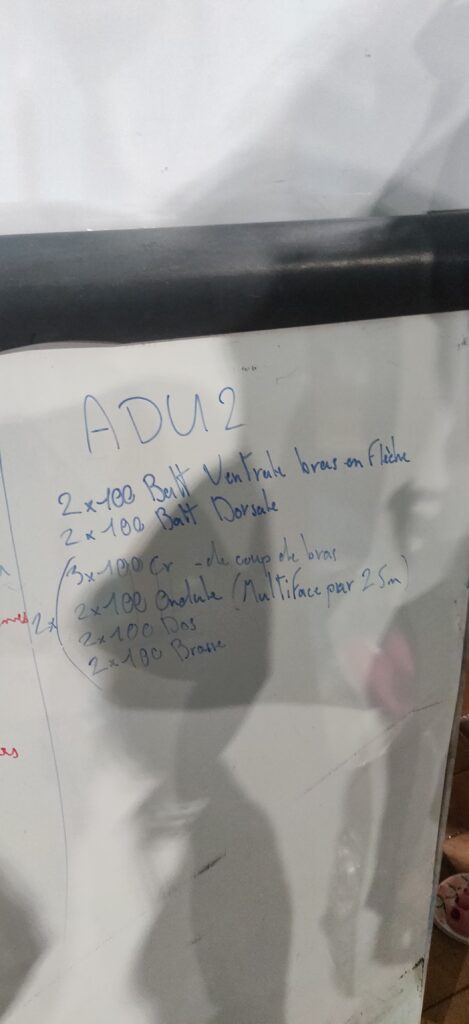 ADU2
2x100 Batt Ventrale bras en Flèche
2x100 Batt Dorsale
3x100 Cr - de coup de bras
2x100 Ondule (Multiface par 25m)
2x
2x100 Dos
2x100 Brasse